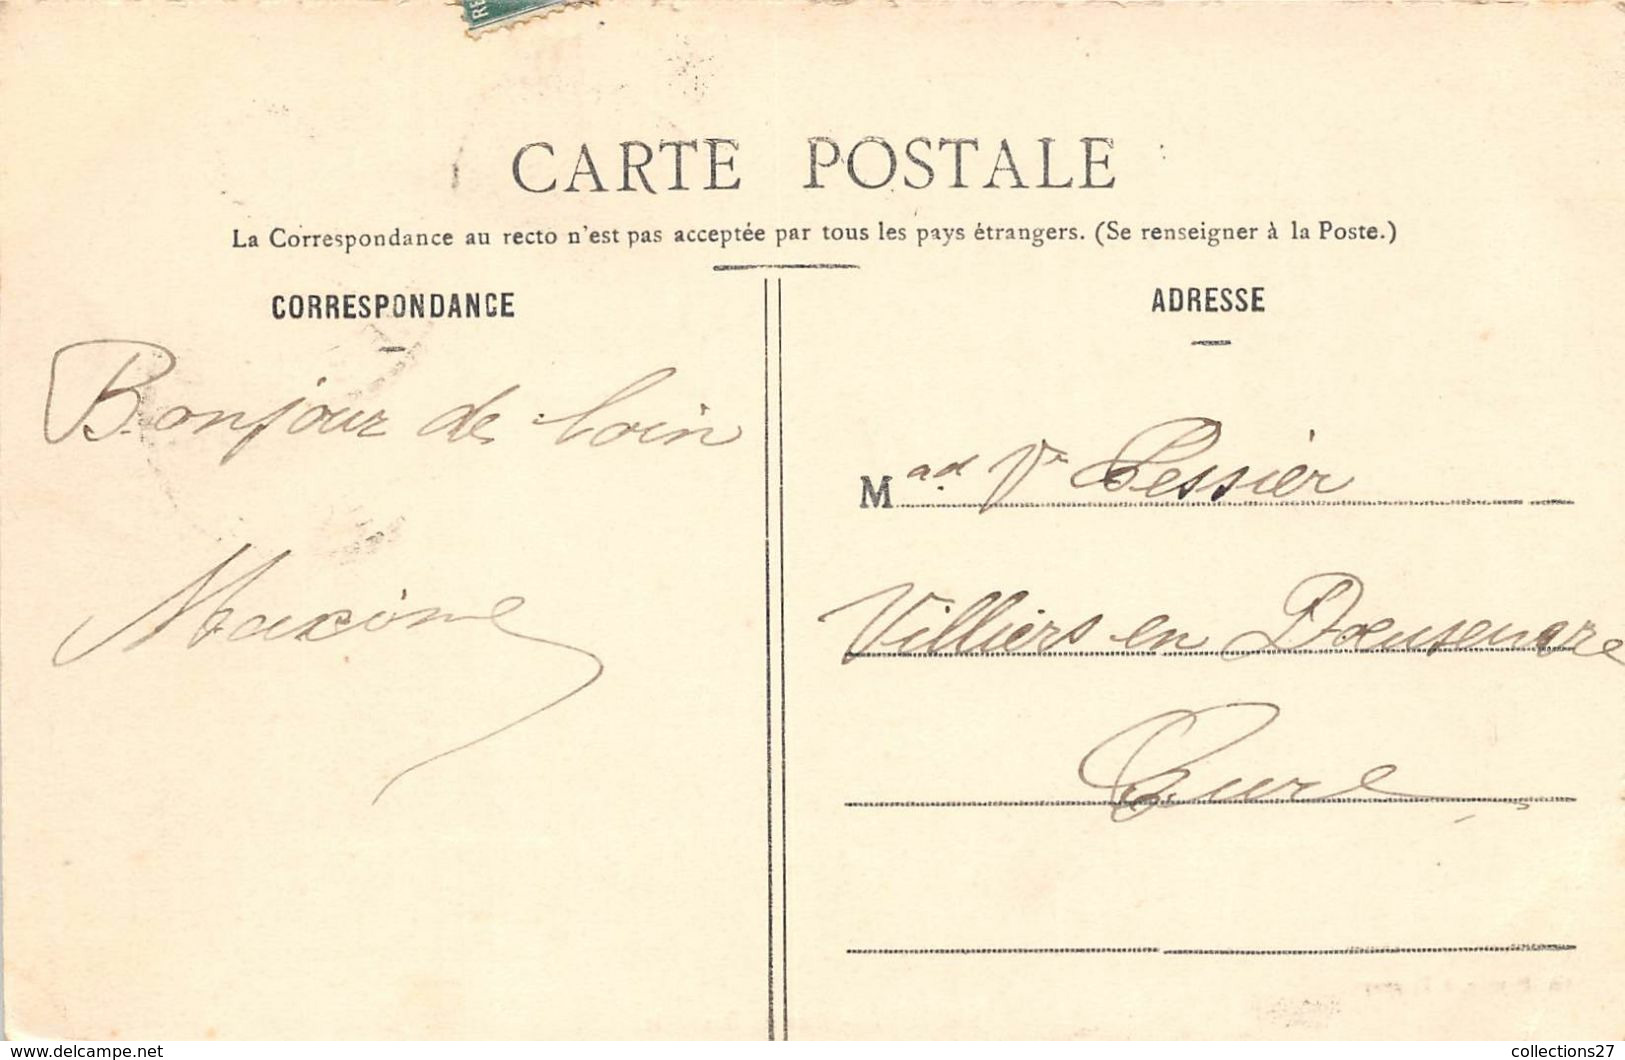 RE
CARTE POSTALE
La Correspondance au recto n'est pas acceptée par tous les pays étrangers. (Se renseigner à la Poste.)
CORRESPONDANCE
Bonjour de loin
Maxime
ADRESSE
Mad. Ve Lessier
Villiers en Désœuvre
Eure
delcampe.net
collections27